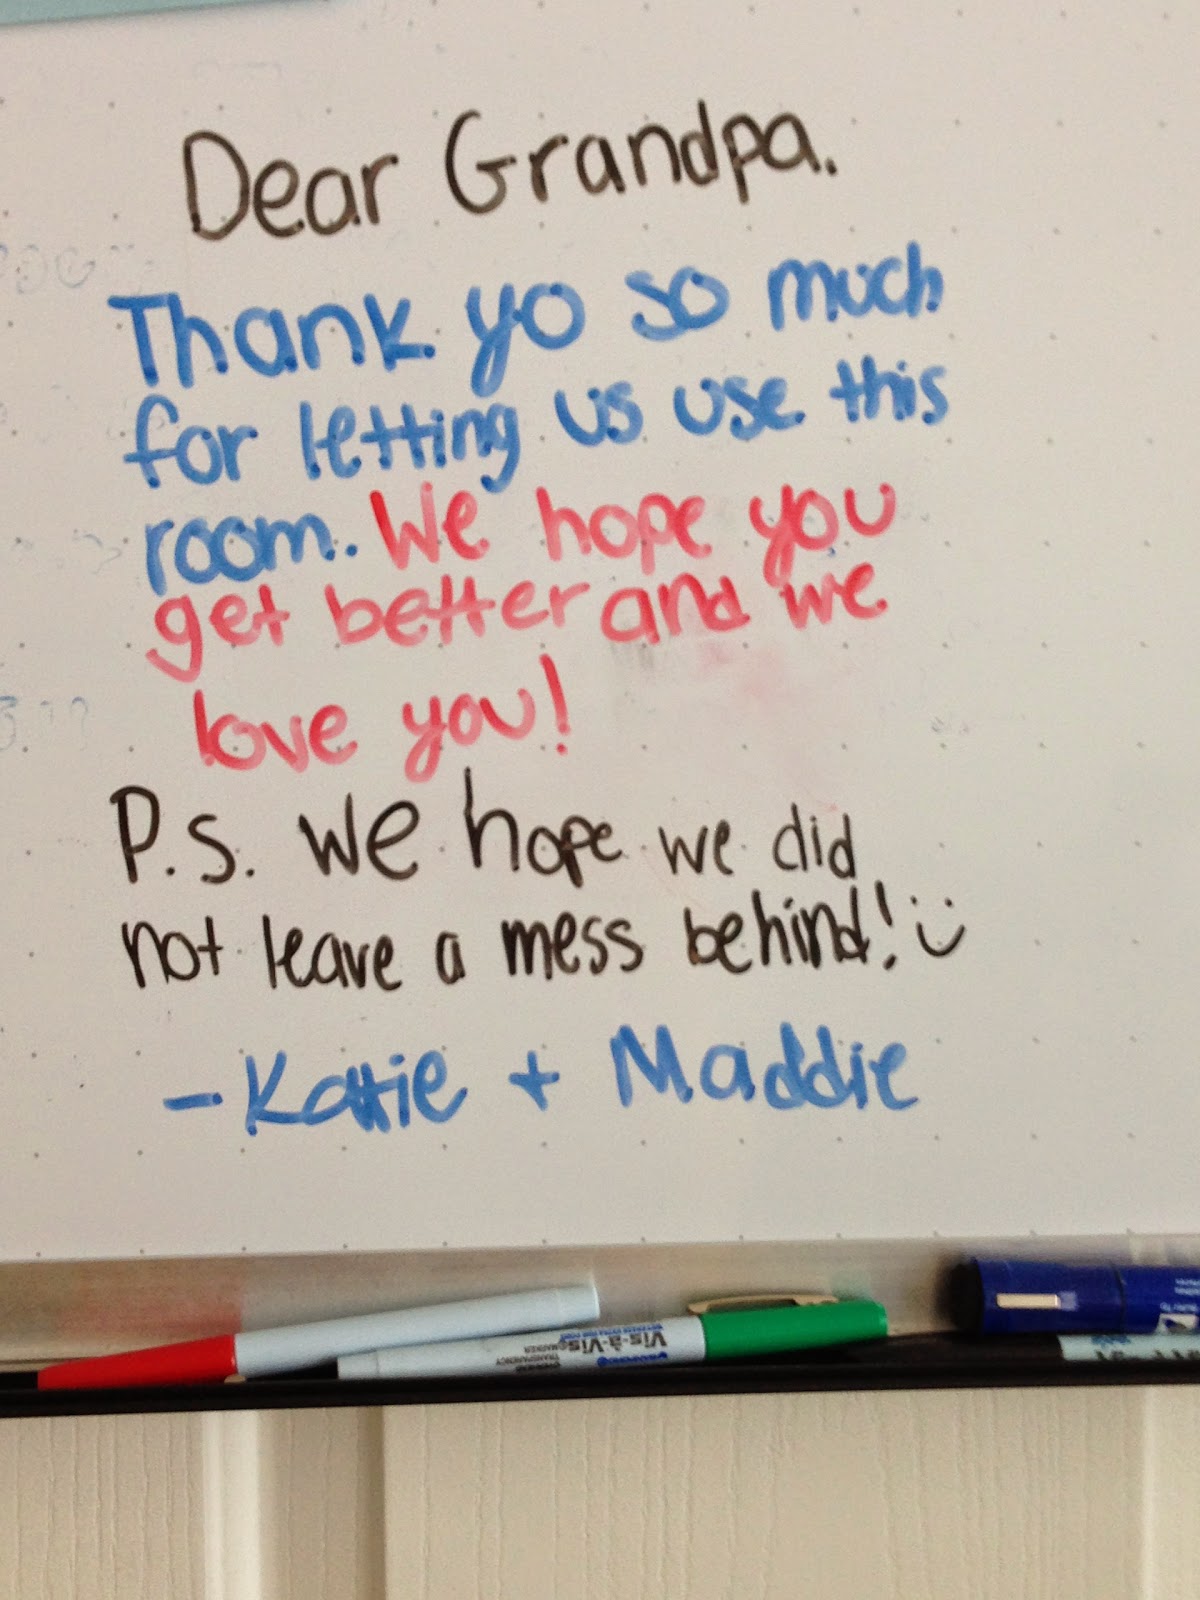 Dear Grandpa.
Thank yo so much
for letting us use this
room. We hope you
get better and we
love you!
P.S. we hope we did
not leave a mess behind! :)
- Katie + Maddie
Vis-à-Vis